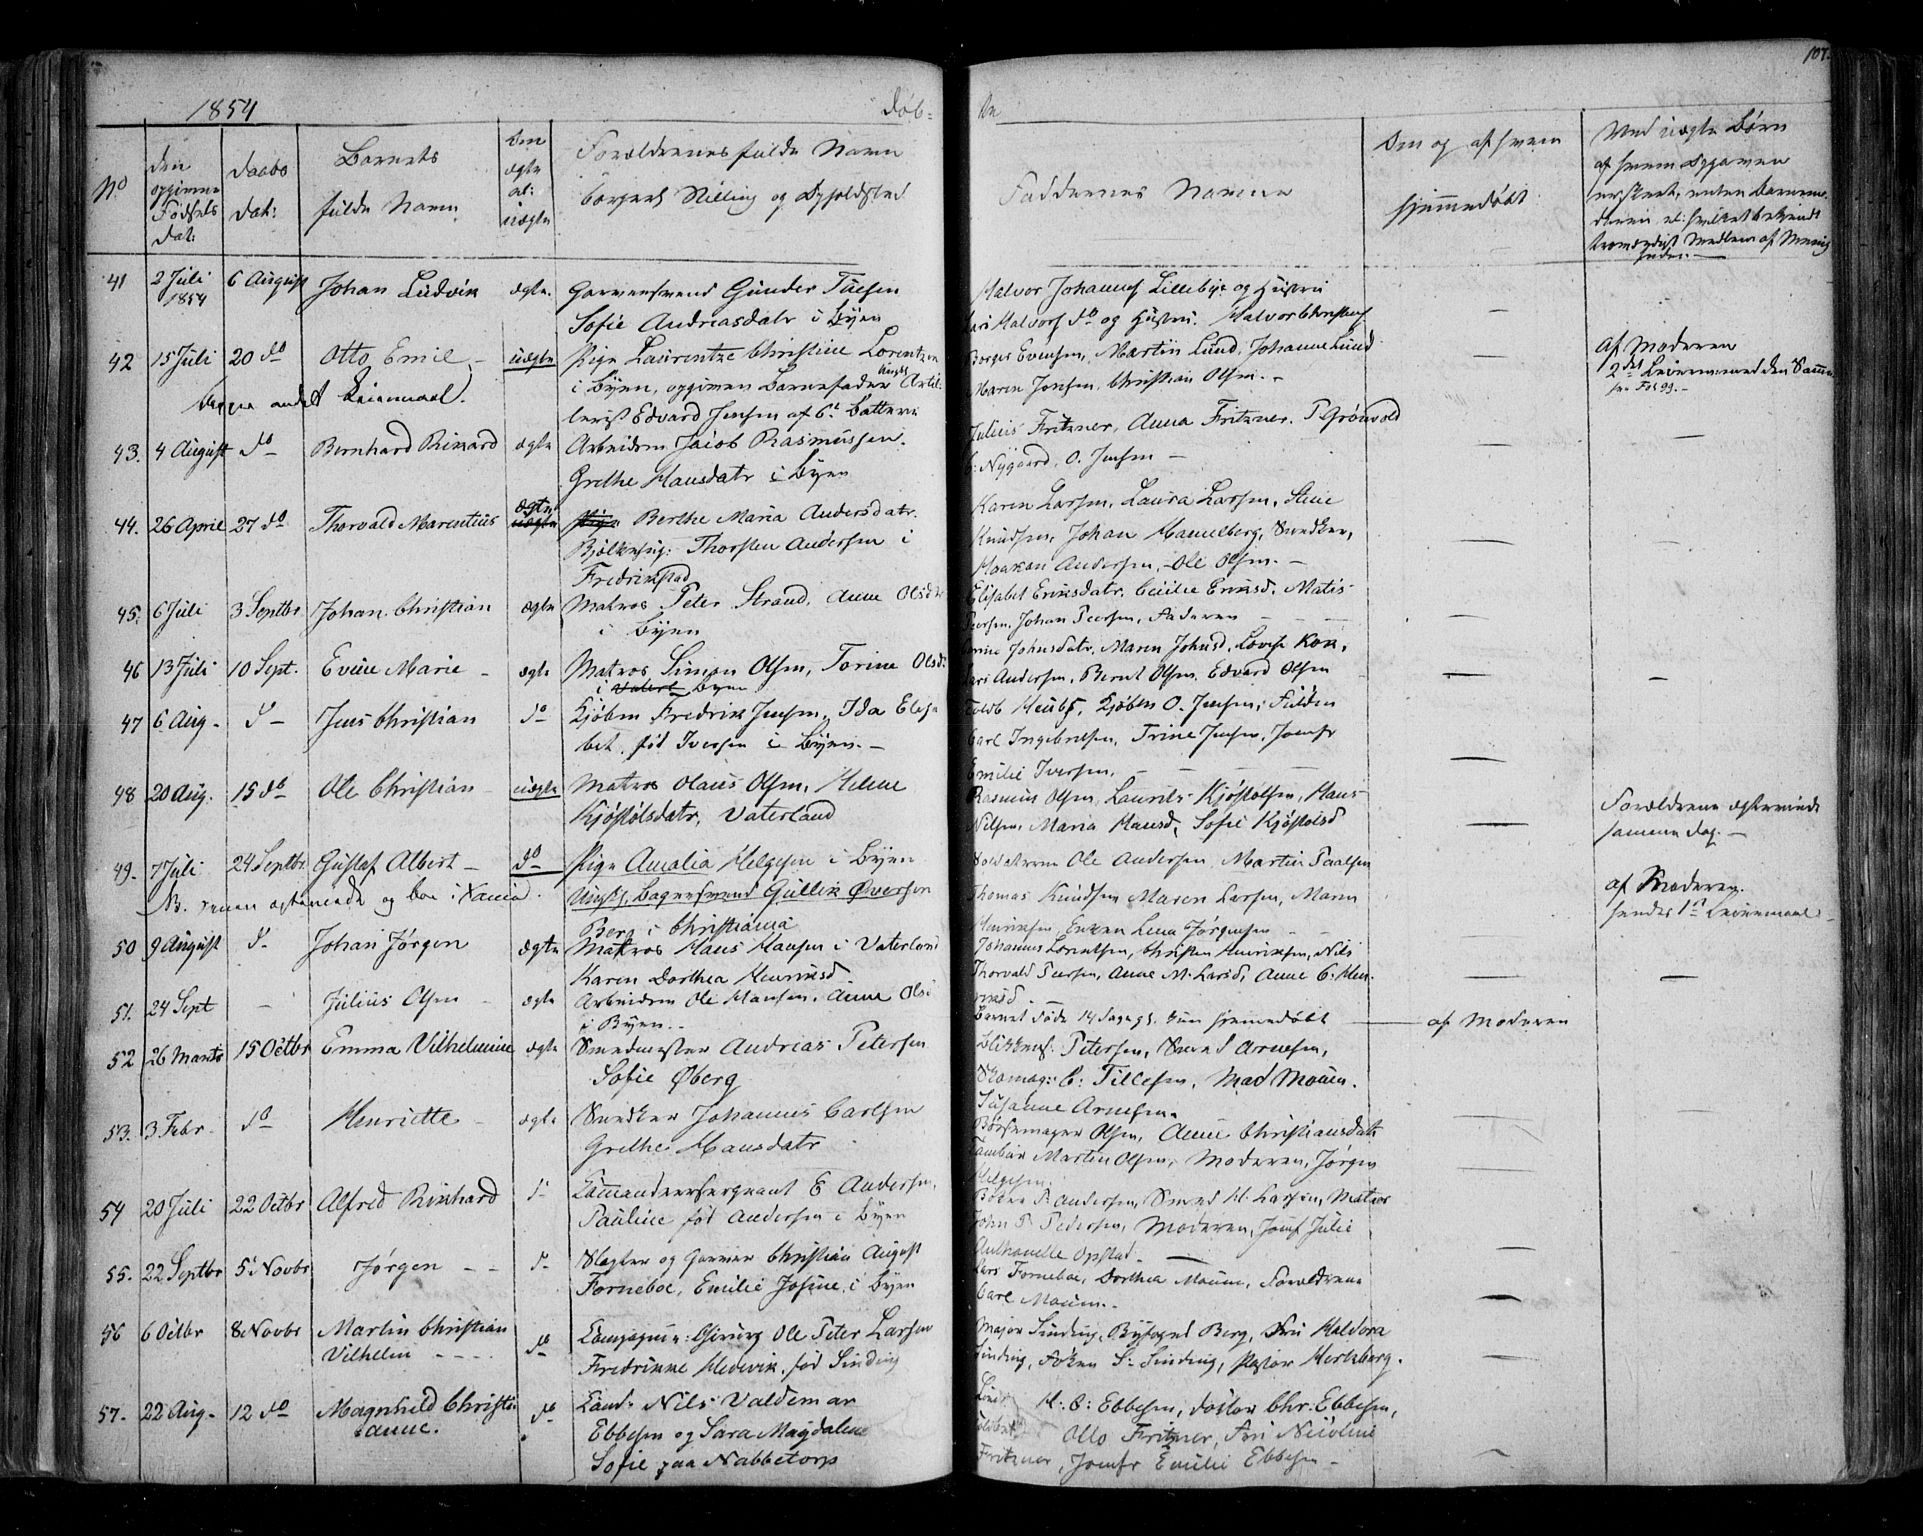 107.
1854
Døb=
te
No
den opgivne Fødsels Dat:
Daabs Dat:
Barnets fulde Navn
Om ægte el: uægte
Forældrenes fulde Navn borgerl. Stilling og Opholdsted
Faddernes Navne
Om og af hvem hjemmedøbt
Ved uægte Børn af hvem Opgaven er skeet, enten Barnemoderen el: hvilket bekjendt troværdigt Medlem af Menigheden.
41 2 Juli 1854 6 August Johan Ludvik ægte. Garversvend Gunder Tuesen
Sofie Andreasdatr i Byen
Halvor Johannes Lillebye og Hustru
Halvors do og Hustru. Halvor Christens
42 15 Juli 20 do Otto Emil uægte Pige Laurentze Christine Lorentzen
i Byen, opgiven Barnefader Artil-
lerist Edvard Jensen af 6te Batteri
Begges andet Leiermaal.
Borger Evensen, Martin Lund, Johanne Lund
Maren Jensen, Christian Olsen. -
af Moderen
2det Leierm. med den Samme
see Fol 99. -
43. 4 August do Bernhard Rikard ægte Arbeidsm Jacob Rasmussen.
Grethe Hansdatr i Byen
Julius Fritzner, Anna Fritzner. P Grønvold
Nygaard, O. Jensen -
44. 26 April 27 do Thorvald Marentius ægte uægte Pige Berthe Maria Andersdatr.
Thorsten Andersen i
Fredrikstad
Karen Larsen, Laura Larsen, Stine
Knudsen, Johan Hammelberg, Snedker,
Haakon Andersen, - Ole Olsen. -
45. 6 Juli 3 Septbr Johan Christian ægte Matros Peter Strand, Anne Olsdr
i Byen
Elisabet Eriksdatr, Cecilie Eriksd. Matis
Peersen, Johan Peersen, Faderen
46 13 Juli 10 Sept. Eveline Marie - ægte Matros Simen Olsen, Torine Olsd:
i Vaterl Byen
Johnsdatr, Maren Johnsd, Lovise
Andersen, Bernt Olsen, Edvard Olsen
47 6 Aug - d - Jens Christian do Kjøbm Fredrik Jensen, Ida Elisa
bet, fød Iversen i Byen. -
Kjøbm O. Jensen,
Carl Ingebretsen, Trine Jensen, Jomfr
Emilie Iversen.
48 20 Aug. 15 do Ole Christian - uægte Matros Olaus Olsen, Helene
Kjøstolsdatr, Vaterland
Rasmus Olsen, Laurits Kjøstolsen, Hans
Nilsen, Maria Hansd, Sofie Kjøstolsd
Forældrene ægteviede
samme Dag. -
49. 7 Juli 24 Septbr Gustaf Albert - do Pige Amalia Helgesen i Byen
Ungk. Bagersvend Gullik Øversen
Berg i Christiania
NB. ægteviede og boe i Xania.
Ole Andersen, Martin Paalsen
Thomas Knudsen, Maren Larsen, Maren
Henriksen, Enken Lena Jørgensen
af Moderen.
hendes 1ste Leiermaal -
50 9 August d - Johan Jørgen ægte Matros Hans Hansen i Vaterland
Karen Dorthea Henriksd
Johannes Lorentsen, Christen Henriksen, Nils
Thorvald Peersen, Anne M. Larsd, Anne C. Hen-
riksd
51. 24 Sept - Julius Olsen - ægte Arbeidsm Ole Hansen, Anne Olsd
i Byen. -
Barnet døde 14 Dage gl. kun hjemmedøbt
af Moderen
52 26 Marts 15 Octbr Emma Vilhelmine ægte Smedmester Andreas Petersen
Sofie Øberg
Petersen, Smed Arnesen,
Skomag: C: Tillesen, Mad Mouen.
Susanne Arnesen.
53. 3 Febr - do Henriette - ægte Snedker Johannes Carlsen
Grethe Hansdatr
Børsemager Olsen, Anne Christiansdatr
Tambur Martin Olsen, Moderen, Jørgen
Helgesen.
54 20 Juli 22 Octbr Alfred Rikhard d - Commandeersergeant E Andersen,
Pauline fød Andersen i Byen
P: Andersen, Smed H. Larsen, Matros
John P Pedersen, Moderen, Jomf Julie
Anthonette Opstad. -
55. 22 Septbr 5 Novbr Jørgen - - d - Slagter og Garver Christian August
Forneboe, Emilie Josine, i Byen
Lars Forneboe, Dorthea Mouen, Forældrene
Carl Mouen. -
56 6 Octbr 8 Novbr Martin Christian
Vilhelm - - - - do Compagnie: Chirurg Ole Peter Larsen
Fredrikke Hedevik, fød Sinding
Major Sinding, Byfoged Berg, Fru Haldora
Sinding, Frøken S: Sinding, Pastor Hertzberg.
57. 22 Aug - 12 do Magnhild Christi-
anne. do Cand: Nils Valdemar
Ebbesen og Sara Magdalene
Sofie paa Nabbetorp
H: C: Ebbesen, Doktor Chr: Ebbesen,
Otto Fritzner, Fru Nicoline
Fritzner, Jomfr Emilie Ebbesen -